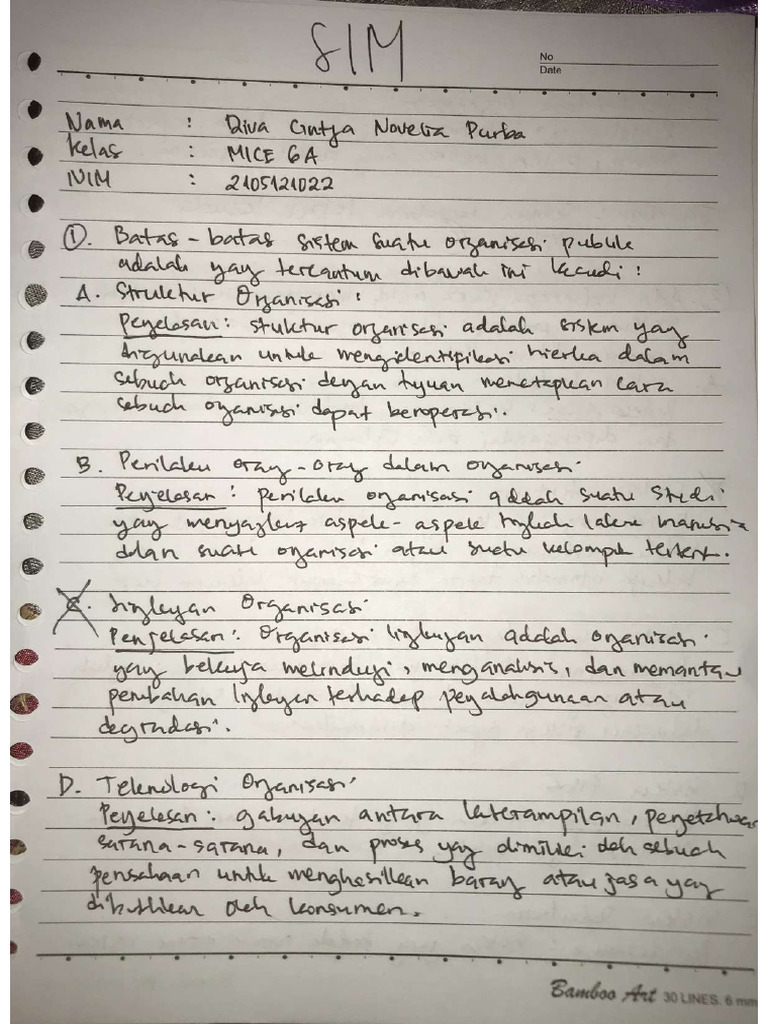 SIM
No
Date
Nama : Diva Cintya Novelia Purba
Kelas : MICE 6A
NIM : 2105121022
①. Batas - batas sistem suatu organisasi publik
adalah yang tercantum dibawah ini kecuali :
A. Struktur Organisasi :
Penjelasan : stuktur organisasi adalah sistem yang
digunakan untuk mengidentipikasi hierka dalam
sebuah organisasi dengan tujuan menetapkan cara
sebuah organisasi dapat beroperasi.
B. Perilaku orang - orang dalam organisasi
Penjelasan : perilaku organisasi adalah suatu studi
yang aspek - aspek tingkah laku manusia
dalam suatu organisasi atau suatu kelompok tertent.
C. Lingkungan Organisasi
Penjelasan : Organisasi lingkungan adalah organisasi
yang bekerja melindungi, menganalisis, dan memantau
perubahan lingkungan terhadap penyalahgunaan atau
degradasi.
D. Teknologi Organisasi
Penjelasan : gabungan antara keterampilan, pengetahuan
sarana-sarana, dan proses yang dimiliki oleh sebuah
perusahaan untuk menghasilkan barang atau jasa yang
dibutuhkan oleh konsumen.
Bamboo Art 30 LINES. 6 mm